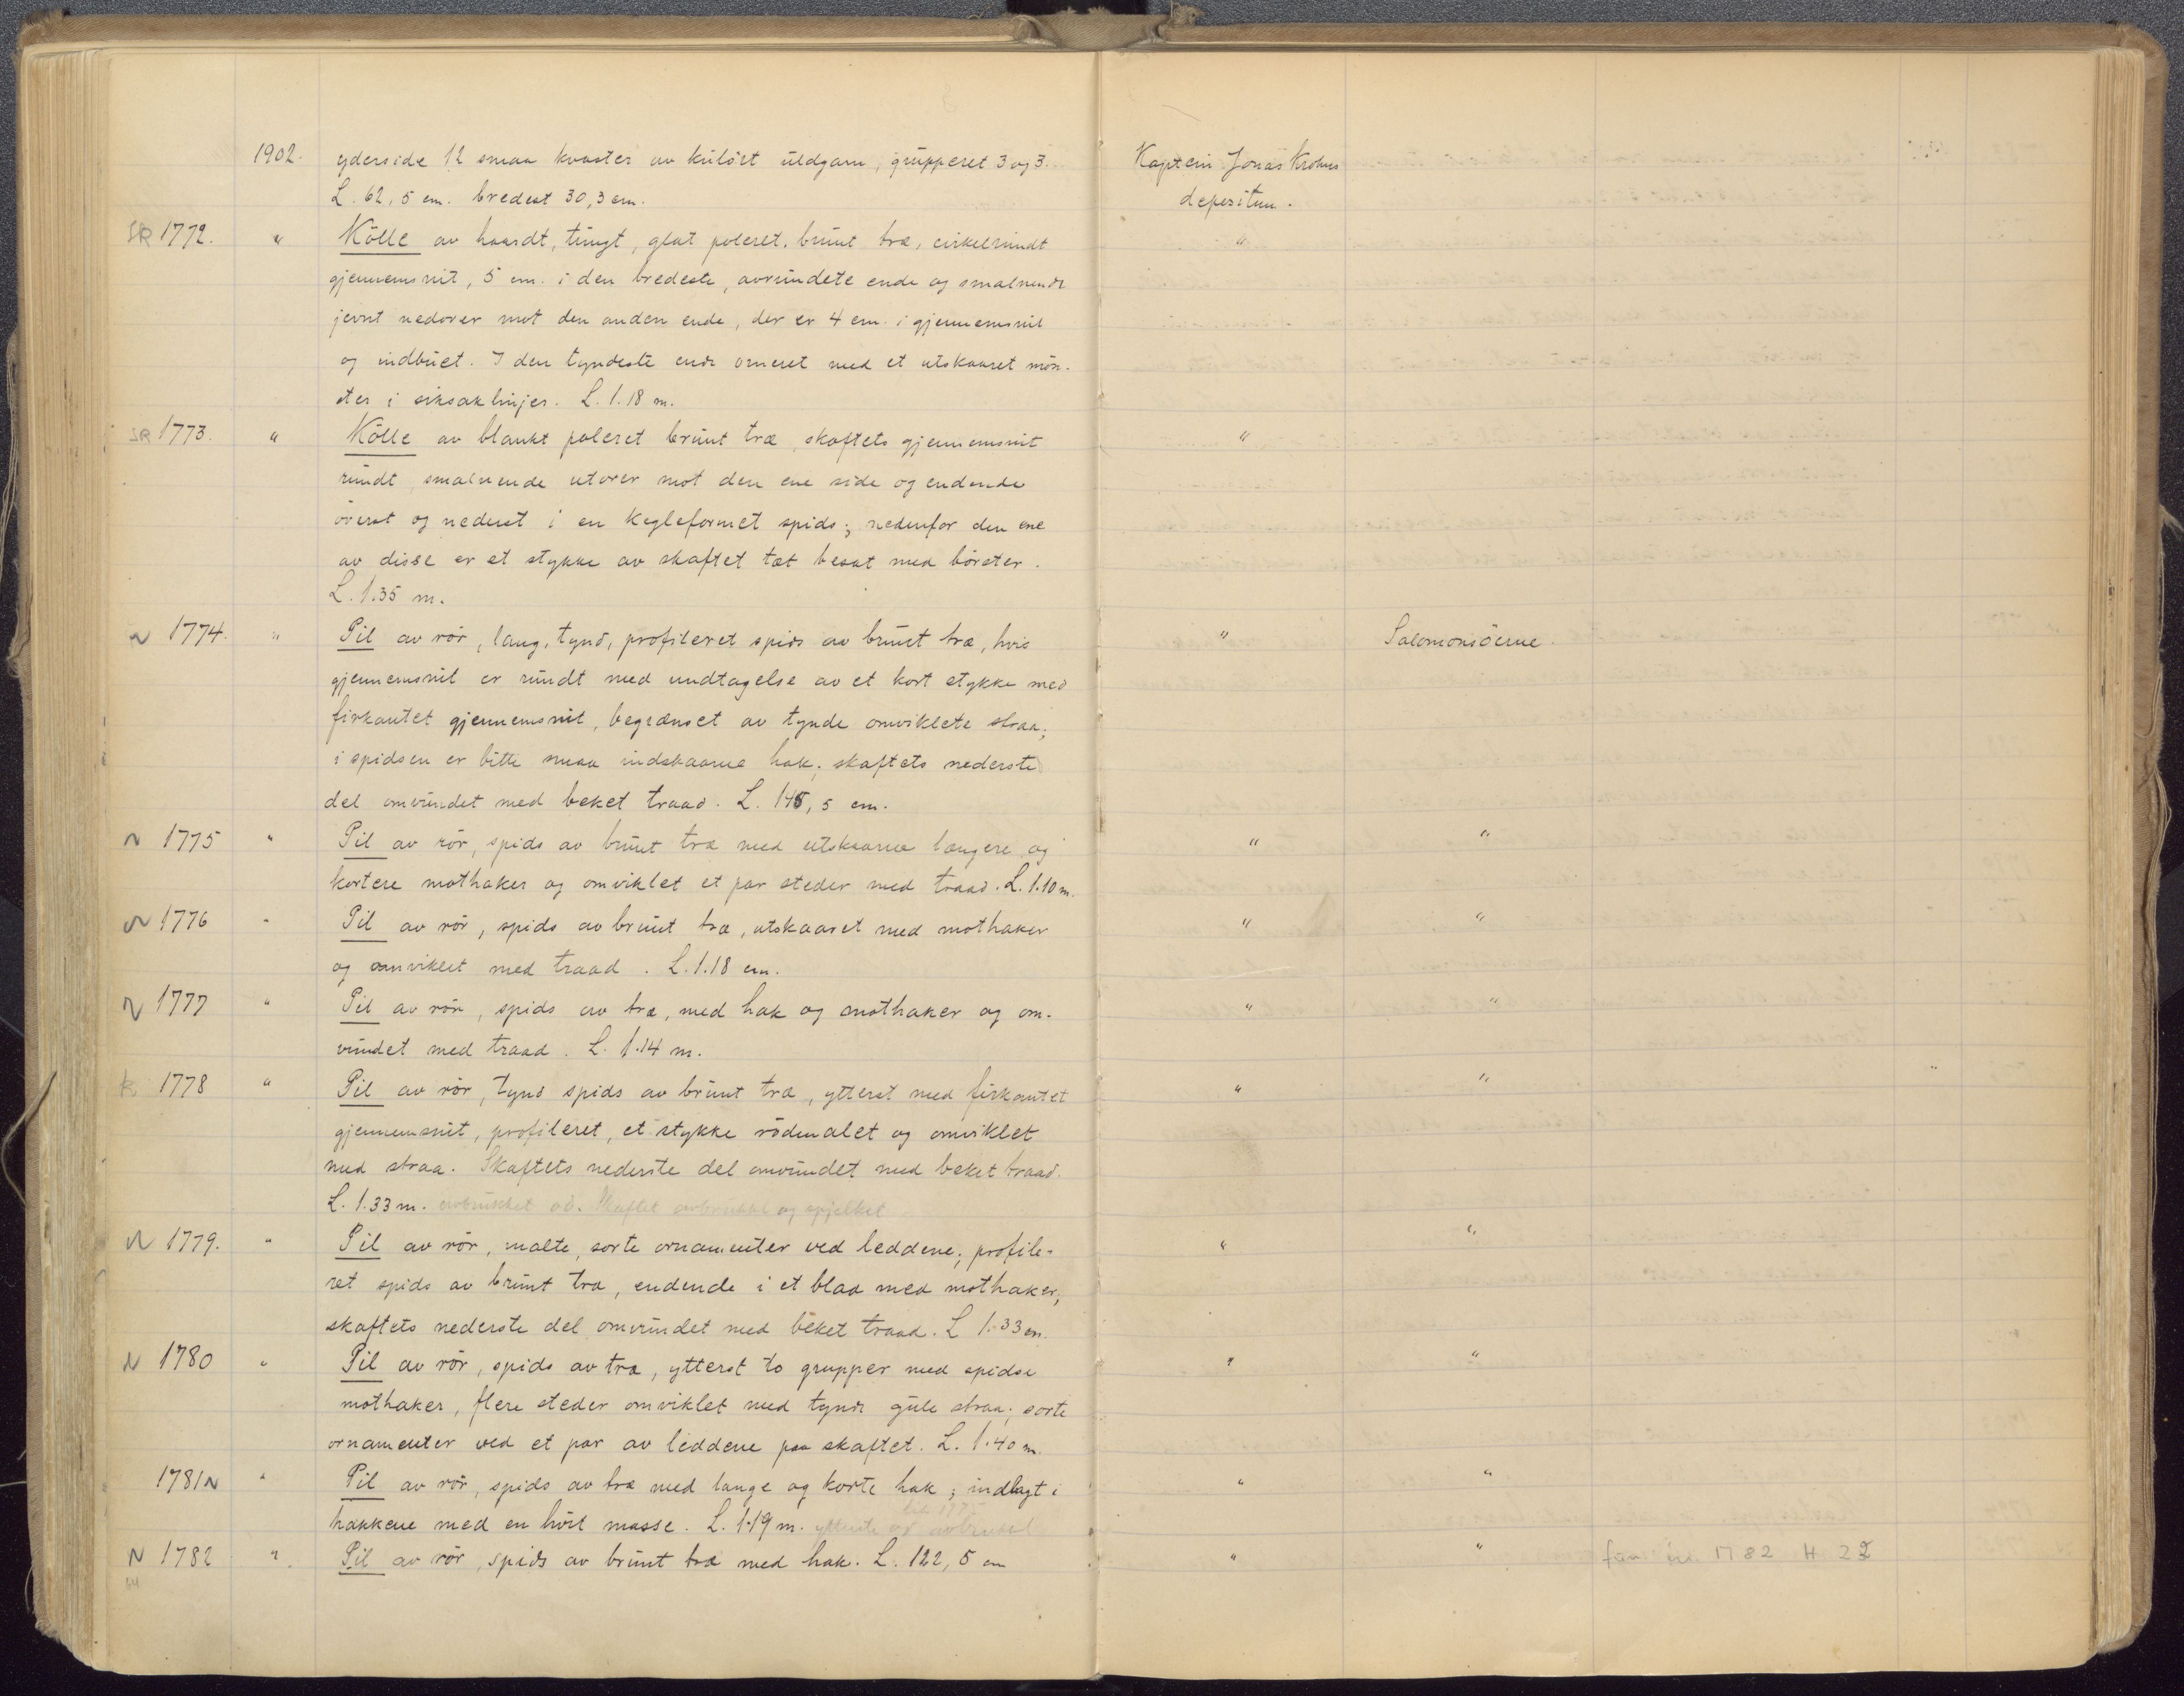 1902. yderside 12 smaa kvaster av kulört uldgarn, grupperet 3 og 3. Kaptein Jonas Krohns
L. 62,5 cm. bredest 30,3 cm. depositum.
SR 1772. " Kölle av haardt, tungt, glat poleret, brunt træ, cirkelrundt "
gjennemsnit, 5 cm. i den bredeste, avrundete ende og smalnende
jevnt nedover mot den anden ende, der er 4 cm. i gjennemsnit
og indbuet. I den tyndeste ende orneret med et utskaaret mön-
ster i siksaklinjer. L. 1.18 m.
SR 1773. " Kölle av blankt poleret brunt træ, skaftets gjennemsnit "
rundt, smalnende utover mot den ene side og endende
överst og nederst i en kegleformet spids; nedenfor den ene
av disse er et stykke av skaftet tæt besat med börster.
L. 1.35 m.
N 1774. " Pil av rör, lang, tynd, profileret spids av brunt træ, hvis " Salomonsöerne.
gjennemsnit er rundt med undtagelse av et kort stykke med
firkantet gjennemsnit, begrænset av tynde omviklete straa;
i spidsen er bitte smaa indskaarne hak; skaftets nederste
del omvundet med beket traad. L. 145,5 cm.
N 1775 " Pil av rör, spids av brunt træ med utskaarne længere og " "
kortere mothaker og omviklet et par steder med traad. L. 1.10 m.
N 1776 " Pil av rör, spids av brunt træ, utskaaret med mothaker " "
og omviklet med traad. L. 1.18 cm.
N 1777 " Pil av rör, spids av træ, med hak og mothaker og om- " "
vundet med traad. L. 1.14 m.
k. 1778 " Pil av rör, tynd spids av brunt træ, ytterst med firkantet " "
gjennemsnit, profileret, et stykke rödmalet og omviklet
med straa. Skaftets nederste del omvundet med beket traad.
L. 1.33 m. avbrukket od. Skaftet avbrukket og spjelket
N 1779. " Pil av rör, malte, sorte ornamenter ved leddene; profile- " "
ret spids av brunt træ, endende i et blad med mothaker;
skaftets nederste del omvundet med beket traad. L 1.33 m.
N 1780 " Pil av rör, spids av træ, ytterst to grupper med spidse " "
mothaker, flere steder omviklet med tynde gule straa; sorte
ornamenter ved et par av leddene paa skaftet. L. 1.40 m.
1781 N " Pil av rör, spids av træ med lange og korte hak; indlagt i " "
hakkene med en hvit masse. L. 1.19 m. ytterste od avbrukket
N 1782 " Pil av rör, spids av brunt træ med hak. L. 122,5 cm " " 1782 H 22